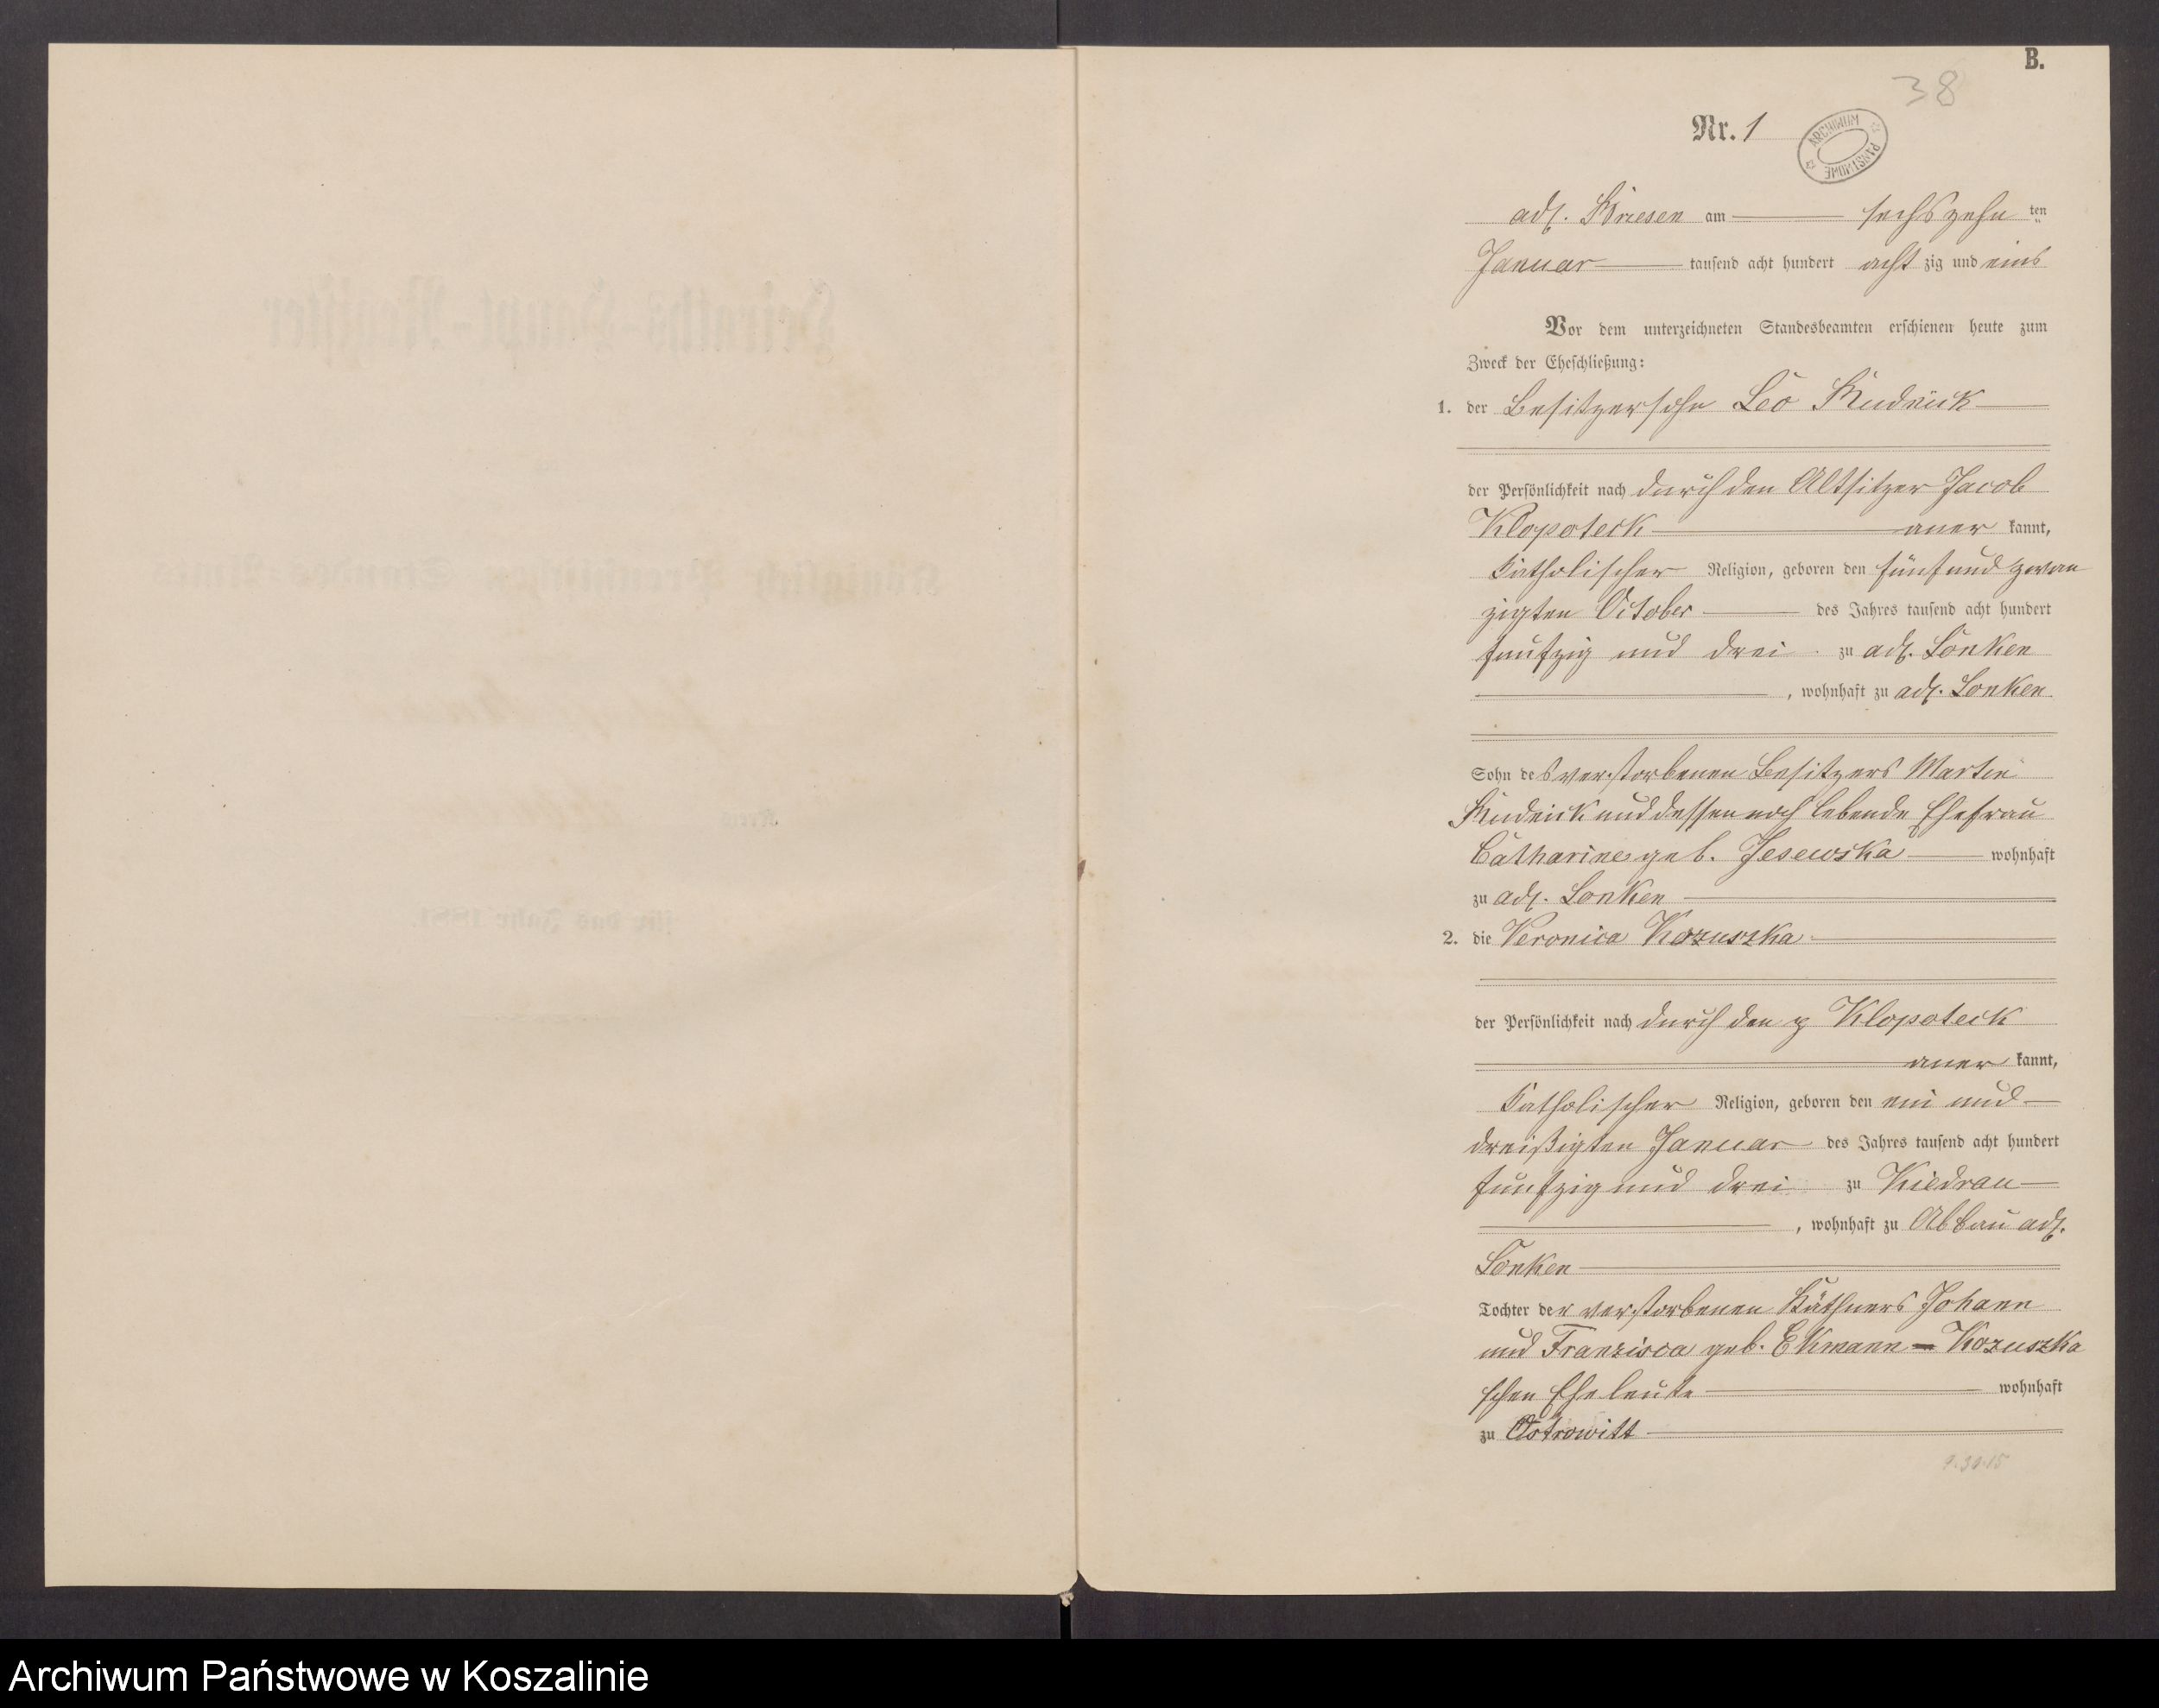 B.
38
Nr. 1
ARCHIWUM PAŃSTWOWE
adl. Briesen am sechszehn ten
Januar tausend acht hundert acht zig und eins
Vor dem unterzeichneten Standesbeamten erschienen heute zum
Zweck der Eheschließung:
1. der Besitzersohn Leo Kudnick
der Persönlichkeit nach durch den Altsitzer Jacob
Klopoteck aner kannt,
katholischer Religion, geboren den fünf und zwan
zigten October des Jahres tausend acht hundert
funfzig und drei zu adl. Lonken
, wohnhaft zu adl. Lonken
Sohn des verstorbenen Besitzers Martin
Kudnick und dessen noch lebende Ehefrau
Catharine geb. Jesewska wohnhaft
zu adl. Lonken
2. die Veronica Kozuszka
der Persönlichkeit nach durch den p Klopoteck
aner kannt,
katholischer Religion, geboren den ein und
dreißigten Januar des Jahres tausend acht hundert
funfzig und drei zu Kiedrau
, wohnhaft zu Abbau adl.
Lonken
Tochter der verstorbenen Käthners Johann
und Franzisca geb. Ekmann - Kozuszka
schen Eheleute wohnhaft
zu Ostrowitt
Archiwum Państwowe w Koszalinie